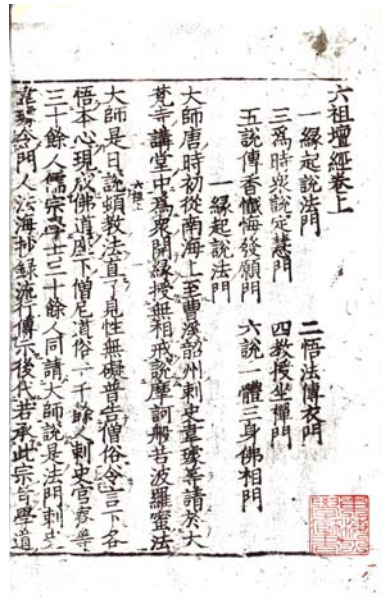 六祖壇經卷上
一緣起說法門 二悟法傳衣門
三爲時衆說定慧門 四教授坐禪門
五說傳香懺悔發願門 六說一體三身佛相門
一緣起說法門
大師唐時初從南海上至曹溪韶州刺史韋璩等請於大
梵寺講堂中爲衆開緣授無相戒說摩訶般若波羅蜜法
六祖上 一
大師是日說頓教法直了見性無礙普告僧俗令言下各
悟本心現成佛道座下僧尼道俗一千餘人刺史官寮等
三十餘人儒宗學士三十餘人同請大師說是法門刺史
韋璩令門人法海抄錄流行傳示後代若承此宗旨學道